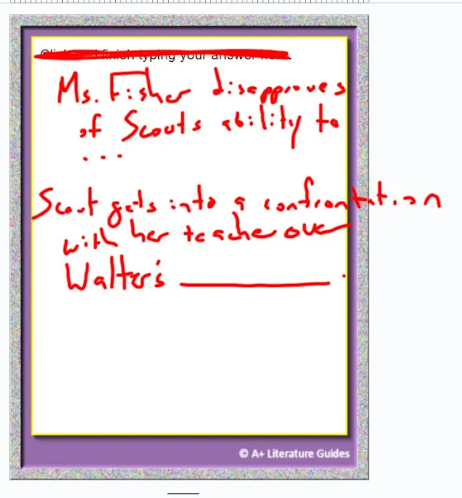 finish typing your answer
Ms. Fisher disapproves
of Scouts ability to
...
Scout gets into a confrontation
with her teacher over
Walter's ___________.
© A+ Literature Guides